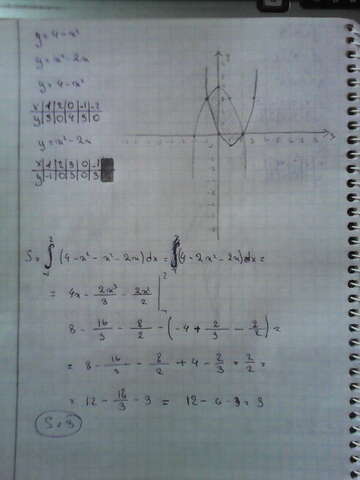 y = 4 - x²
y = x² - 2x
y = 4 - x²
x | 1 | 2 | 0 | -1 | -2
y | 3 | 0 | 4 | 3 | 0
y = x² - 2x
x | 1 | 2 | 3 | 0 | -1
y | -1 | 0 | 3 | 0 | 3
S = ∫ (4 - x² - x² - 2x) dx = ∫ (4 - 2x² - 2x) dx =
= 4x - 2x³/3 - 2x²/2 |
8 - 16/3 - 8/2 - (-4 + 2/3 - 2/2) =
= 8 - 16/3 - 8/2 + 4 - 2/3 + 2/2 =
= 12 - 18/3 - 3 = 12 - 6 - 3 = 3
S = 3